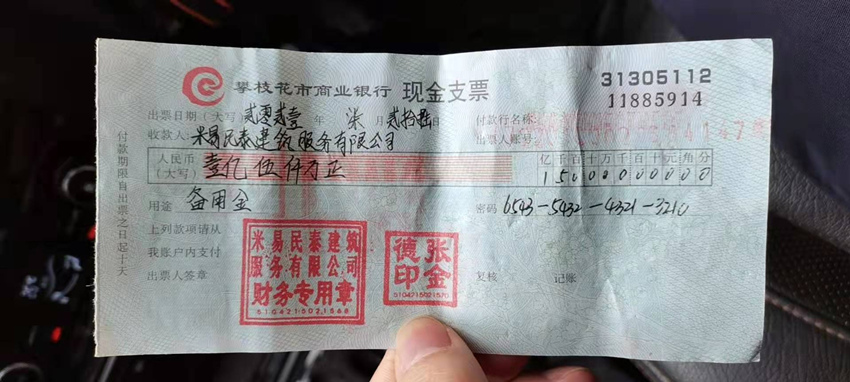 攀枝花市商业银行 现金支票
31305112
11885914
出票日期（大写） 贰零贰壹 年 柒 月 贰拾 日
付款行名称：
收款人：米易民泰建筑服务有限公司
出票人账号：
人民币（大写） 壹亿伍仟万正
亿千百十万千百十元角分
15000000000
用途 备用金
密码 6543-5432-4321-3210
上列款项请从
我账户内支付
出票人签章
复核 记账
付款期限自出票之日起十天
米易民泰建筑
服务有限公司
财务专用章
5104215021568
张金德印